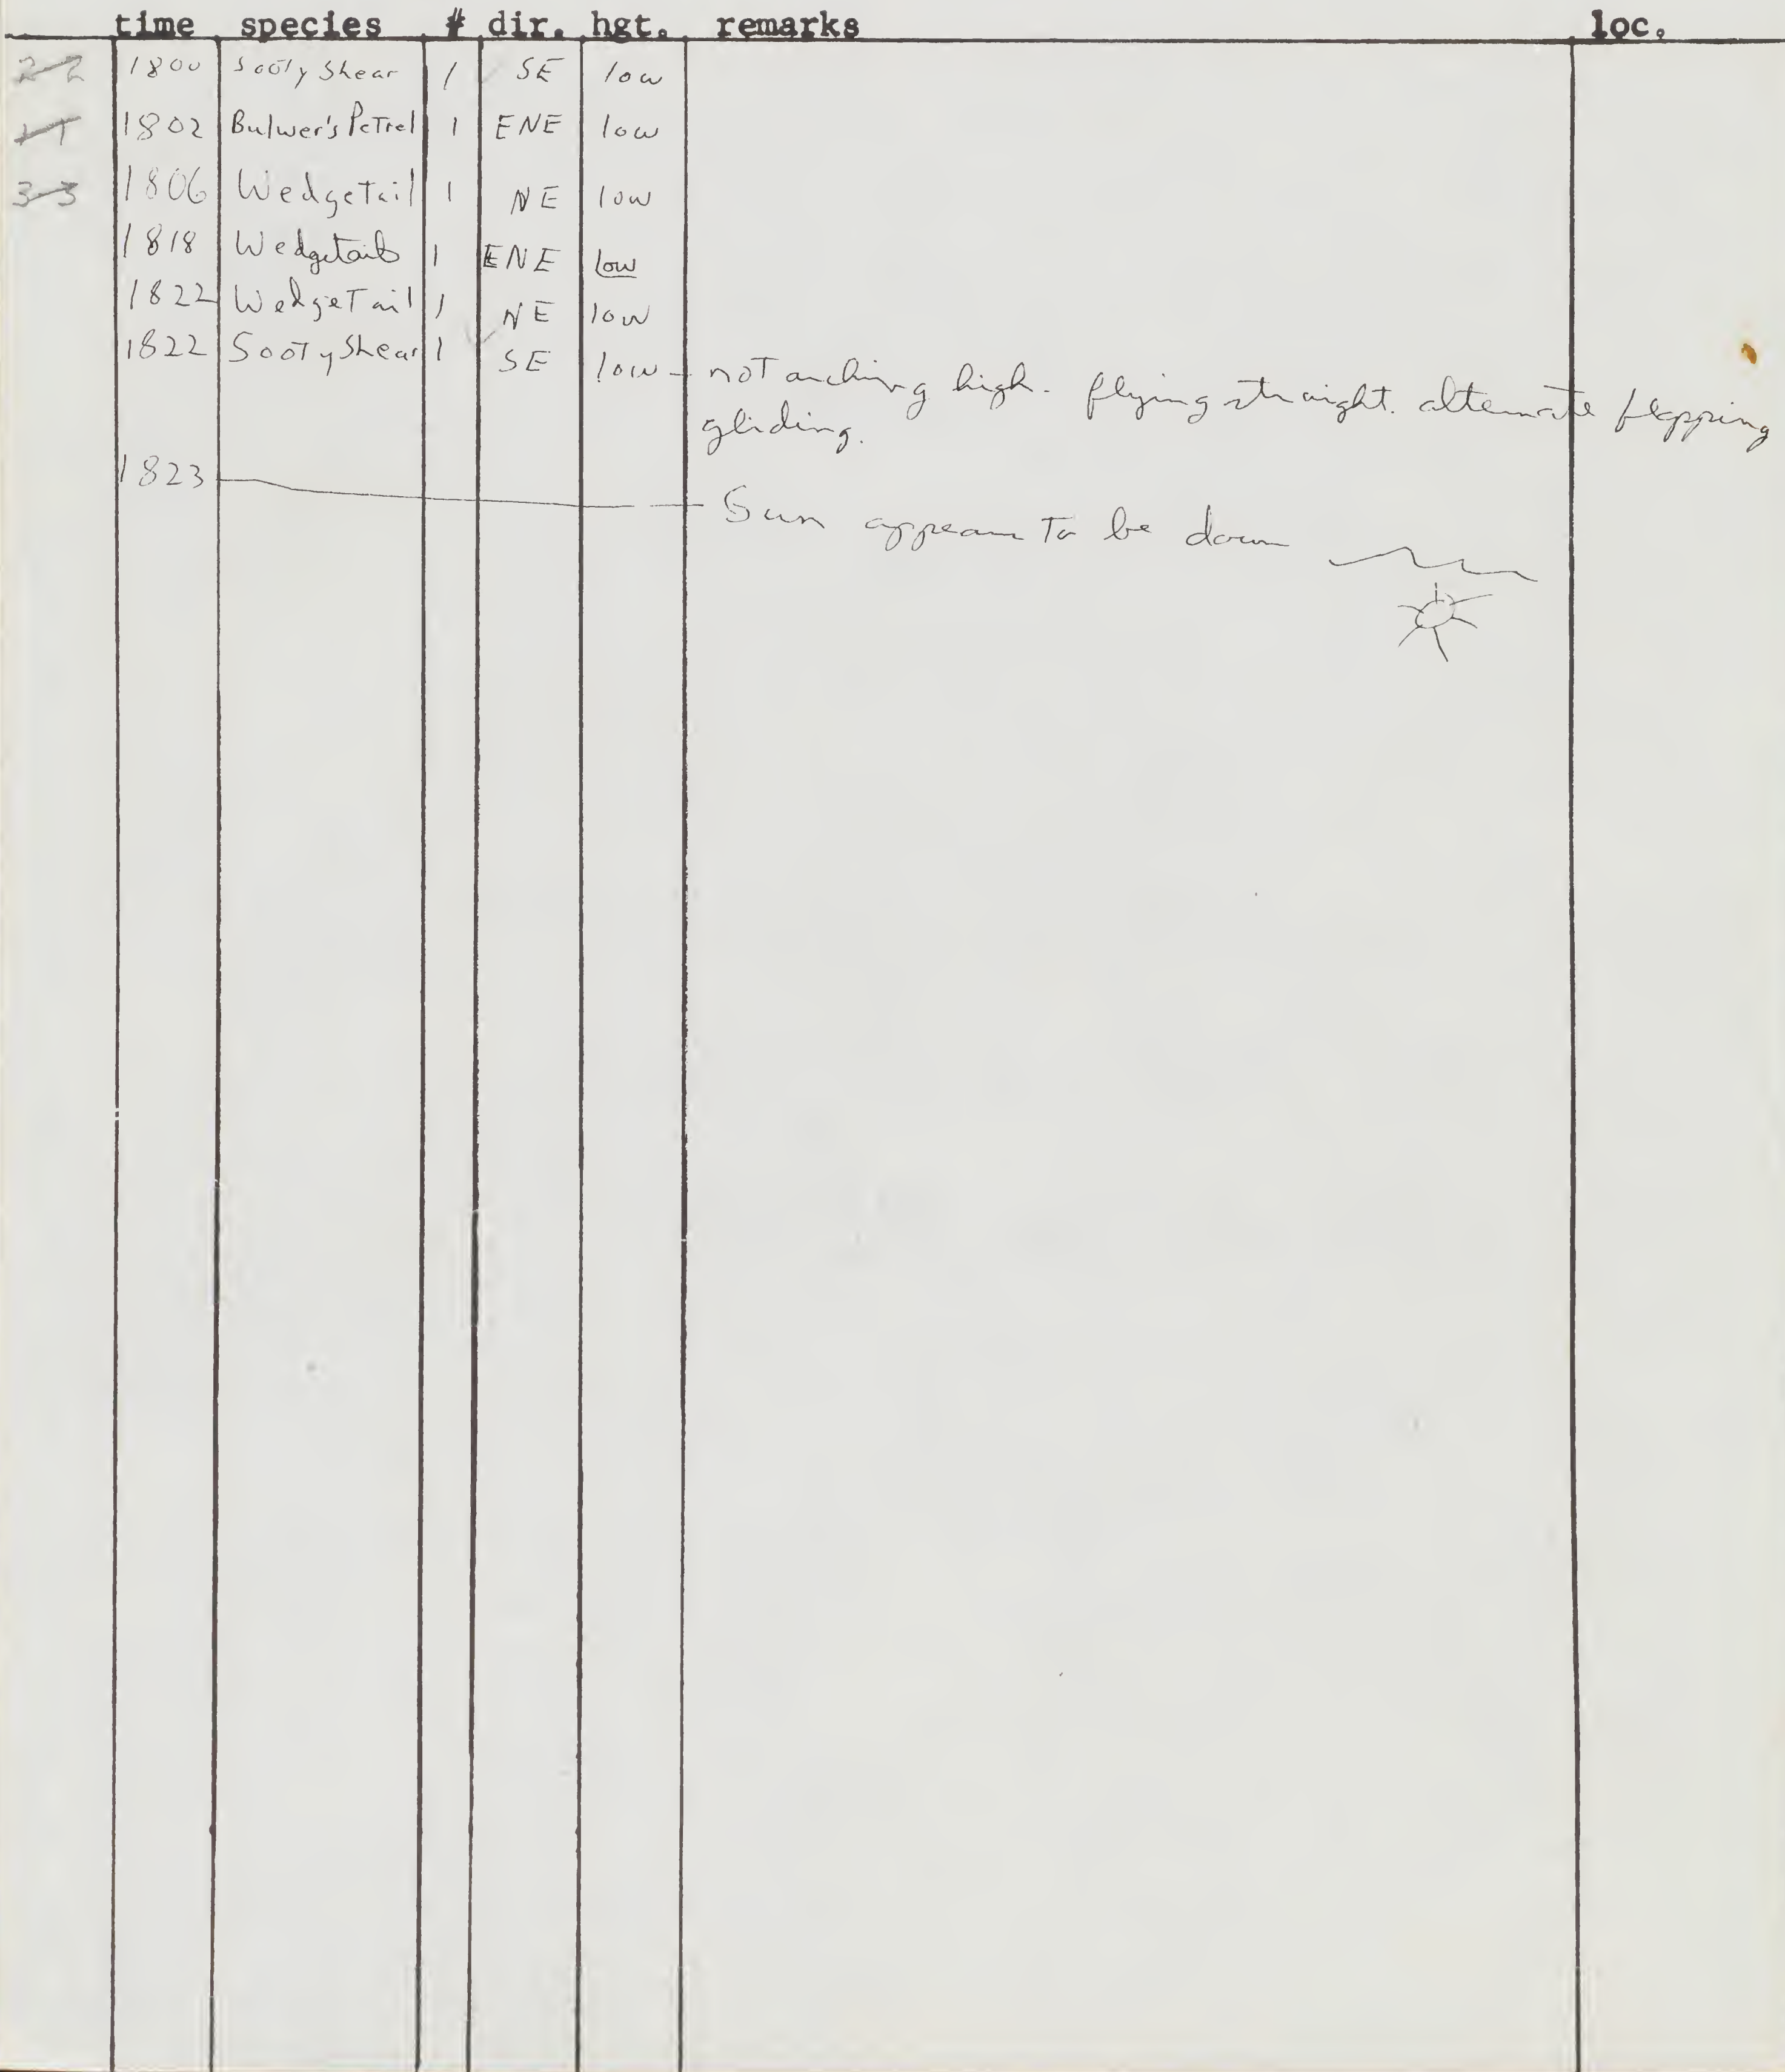 time species # dir. hgt. remarks loc.
2-2 1800 Sooty Shear 1 SE low
1-1 1802 Bulwer's Petrel 1 ENE low
3-3 1806 Wedgetail 1 NE low
1818 Wedgetails 1 ENE low
1822 Wedgetail 1 NE low
1822 Sooty Shear 1 SE low - not arching high. flying straight. alternate flapping
gliding.
1823 Sun appears to be down